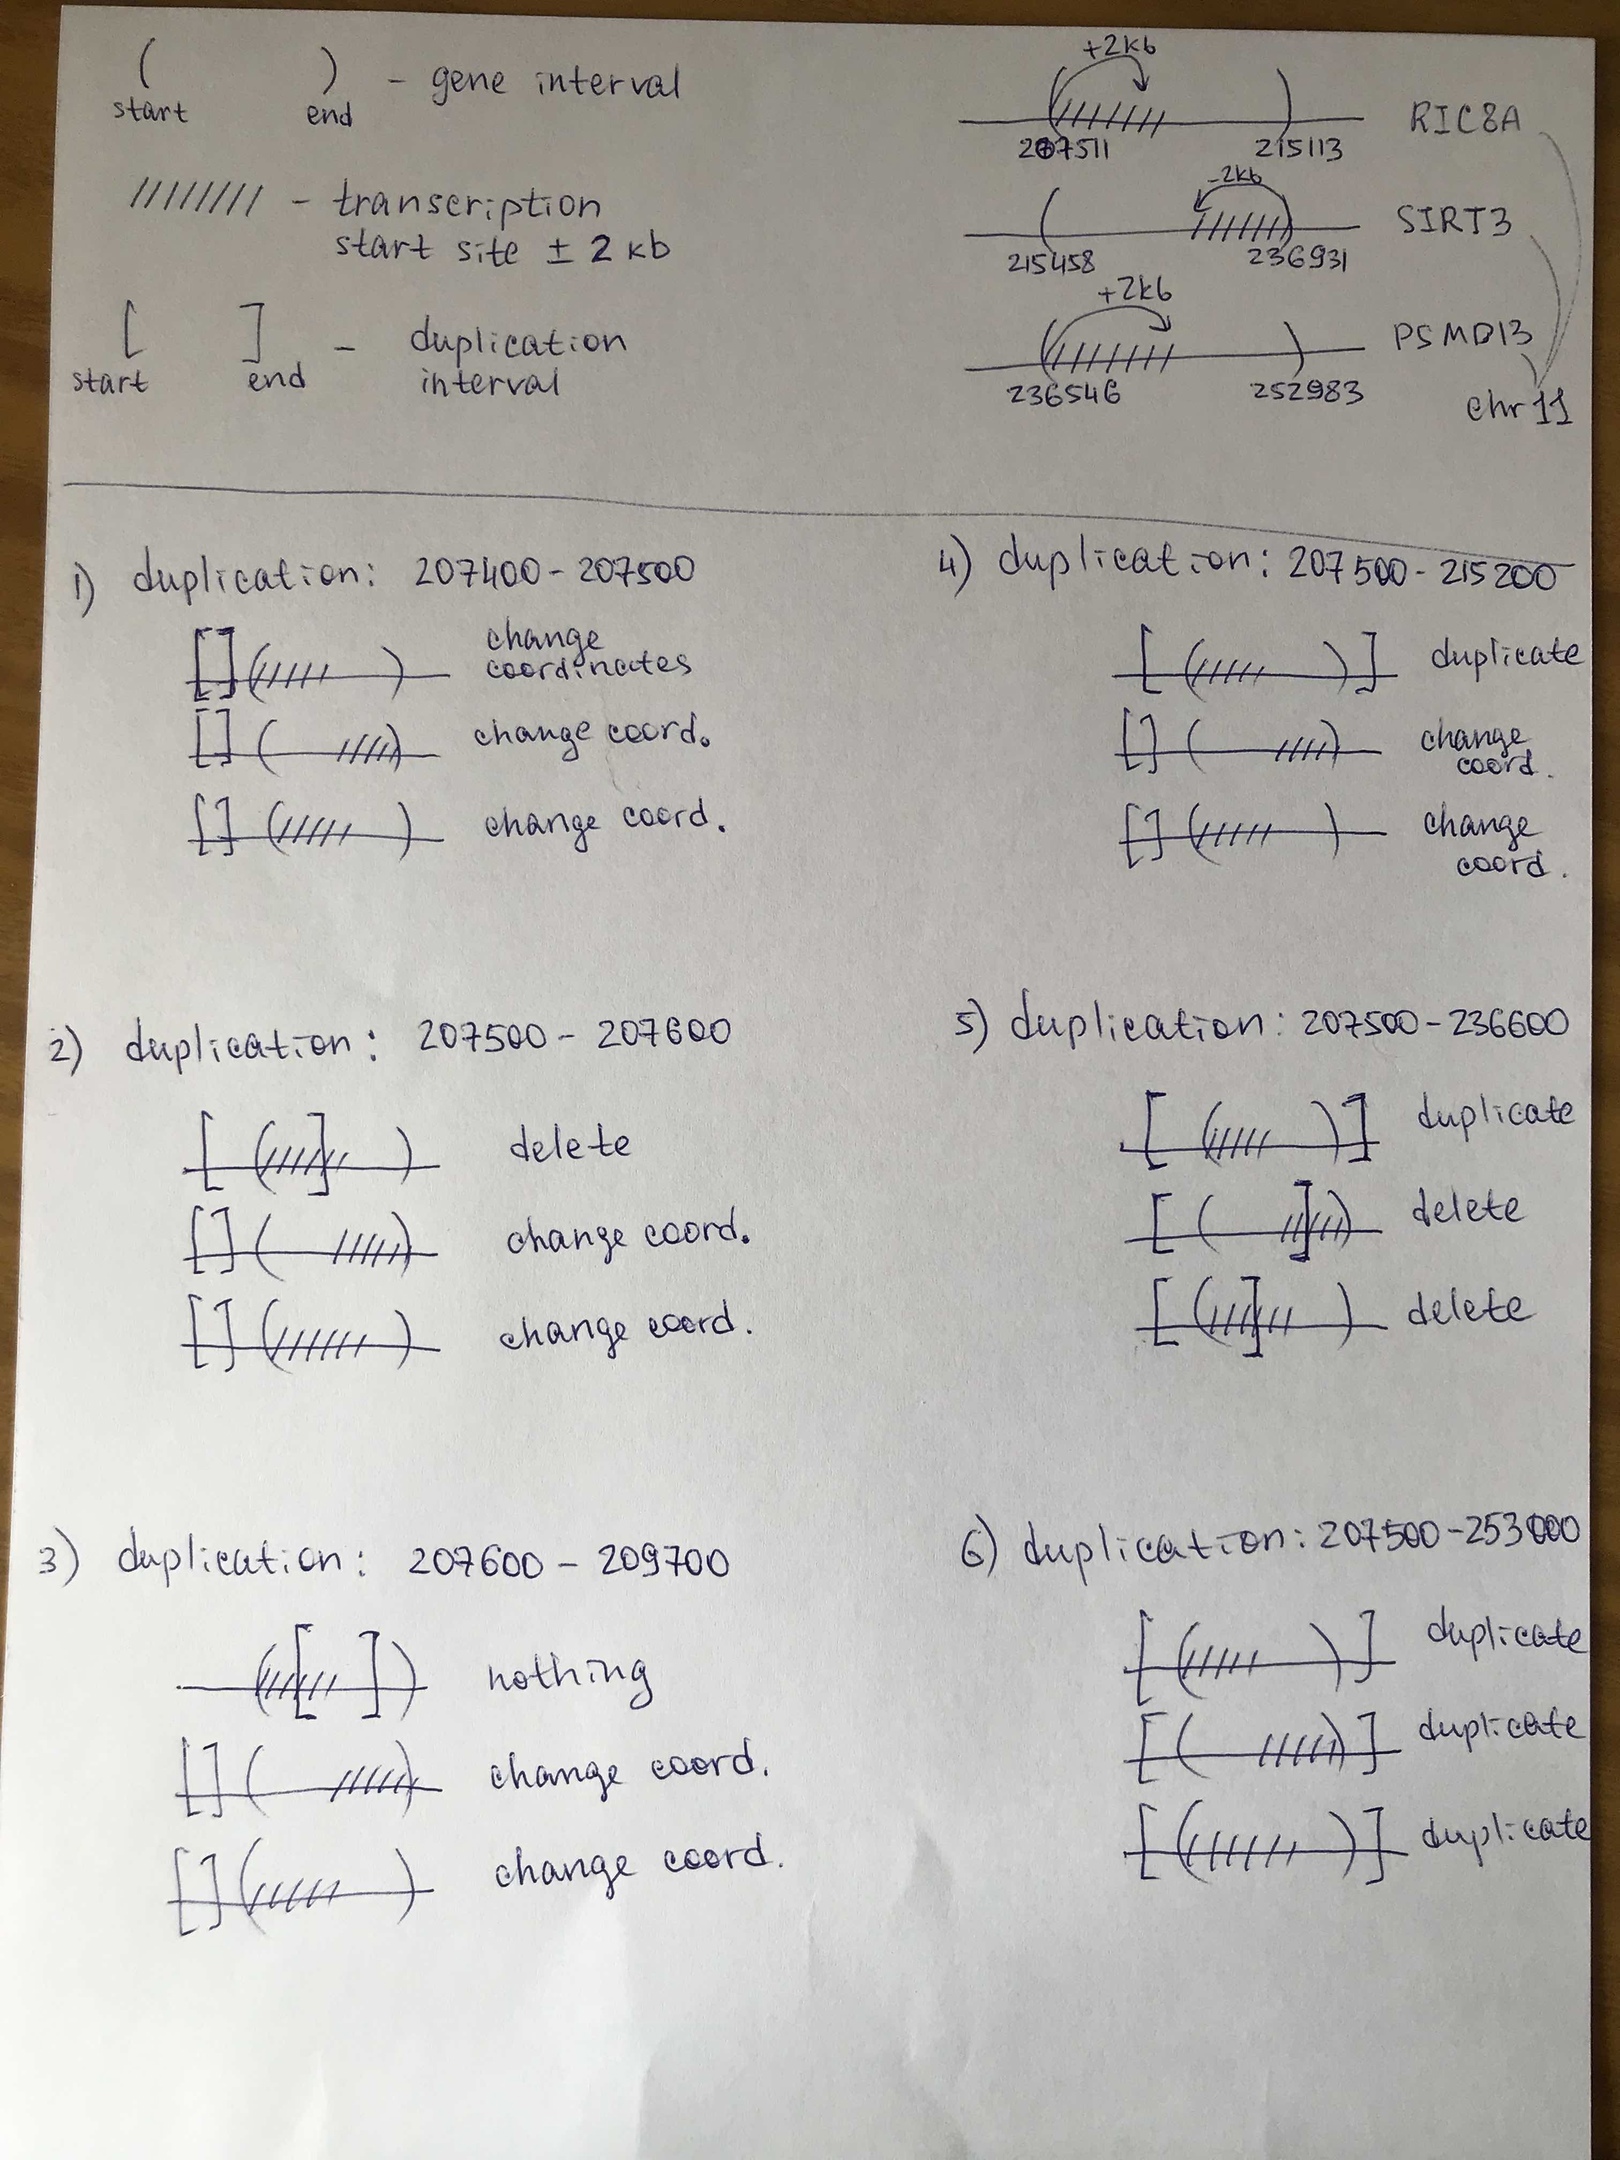 ( ) - gene interval
start end
//////// - transcription
start site ± 2 kb
[ ] - duplication
start end interval
+2kb
RIC8A
207511 215113
-2kb
SIRT3
215458 236931
+2kb
PSMD13
236546 252983
chr11
1) duplication: 207400-207500
change
coordinates
change coord.
change coord.
2) duplication: 207500 - 207600
delete
change coord.
change coord.
3) duplication: 207600 - 209700
nothing
change coord.
change coord.
4) duplication: 207500-215200
duplicate
change
coord.
change
coord.
5) duplication: 207500-236600
duplicate
delete
delete
6) duplication: 207500-253000
duplicate
duplicate
duplicate